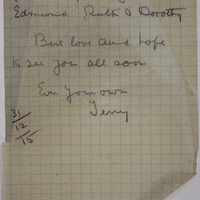 Edmund, Ruth & Dorothy
Best love and hope
to see you all soon
Ever your own
Terry
31/12/15